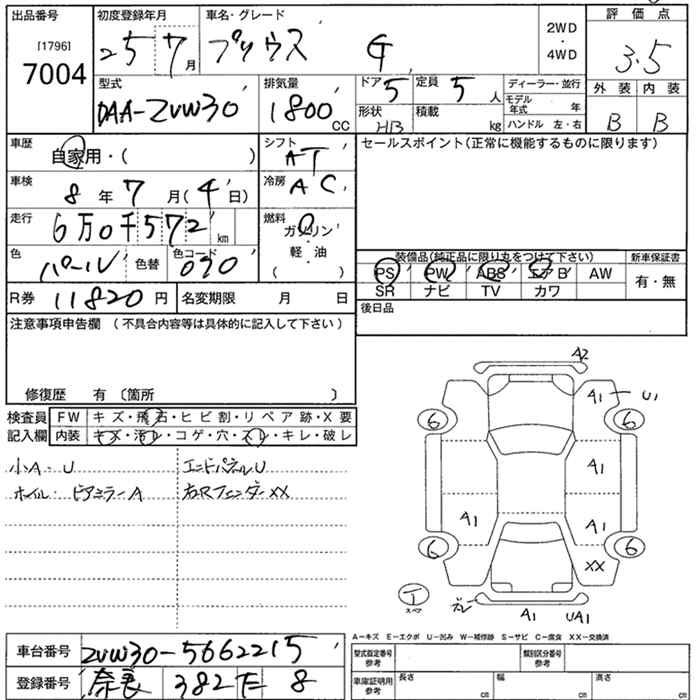 出品番号
[1796]
7004
初度登録年月
25 7月
車名・グレード
プリウス G
2WD
・
4WD
評価点
3.5
型式
DAA-ZVW30
排気量
1800 CC
ドア 5
定員 5人
ディーラー・並行
モデル年式 年
形状 HB
積載 kg
ハンドル 左・右
外装 内装
B B
車歴
自家用・( )
シフト
AT
セールスポイント(正常に機能するものに限ります)
車検
8年7月(4日)
冷房
AC
走行
6万0千572km
燃料
ガソリン
軽・油
( )
色
パール
色替
色コード
070
装備品(純正品に限り丸をつけて下さい)
新車保証書
PS PW ABS エアB AW
SR ナビ TV カワ
有・無
R券 11820円
名変期限 月 日
後日品
注意事項申告欄 (不具合内容等は具体的に記入して下さい)
修復歴 有 〔箇所 〕
検査員
記入欄
FW キズ・飛石・ヒビ割・リペア跡・X要
内装 キズ・汚レ・コゲ・穴・スレ・キレ・破レ
小A・U
エンドパネルU
ホイル・ドアミラーA
右Rフェンダー XX
A2
A1 U1
6 6
A1
A1 A1
6 6
XX
T
スペア
A1 UA1
A−キズ E−エクボ U−凹み W−補修跡 S−サビ C−腐食 XX−交換済
車台番号
ZVW30-5662215
登録番号
奈良 382 た 8
型式指定番号
参考
類別区分番号
参考
車庫証明用
参考
長さ cm
幅 cm
高さ cm